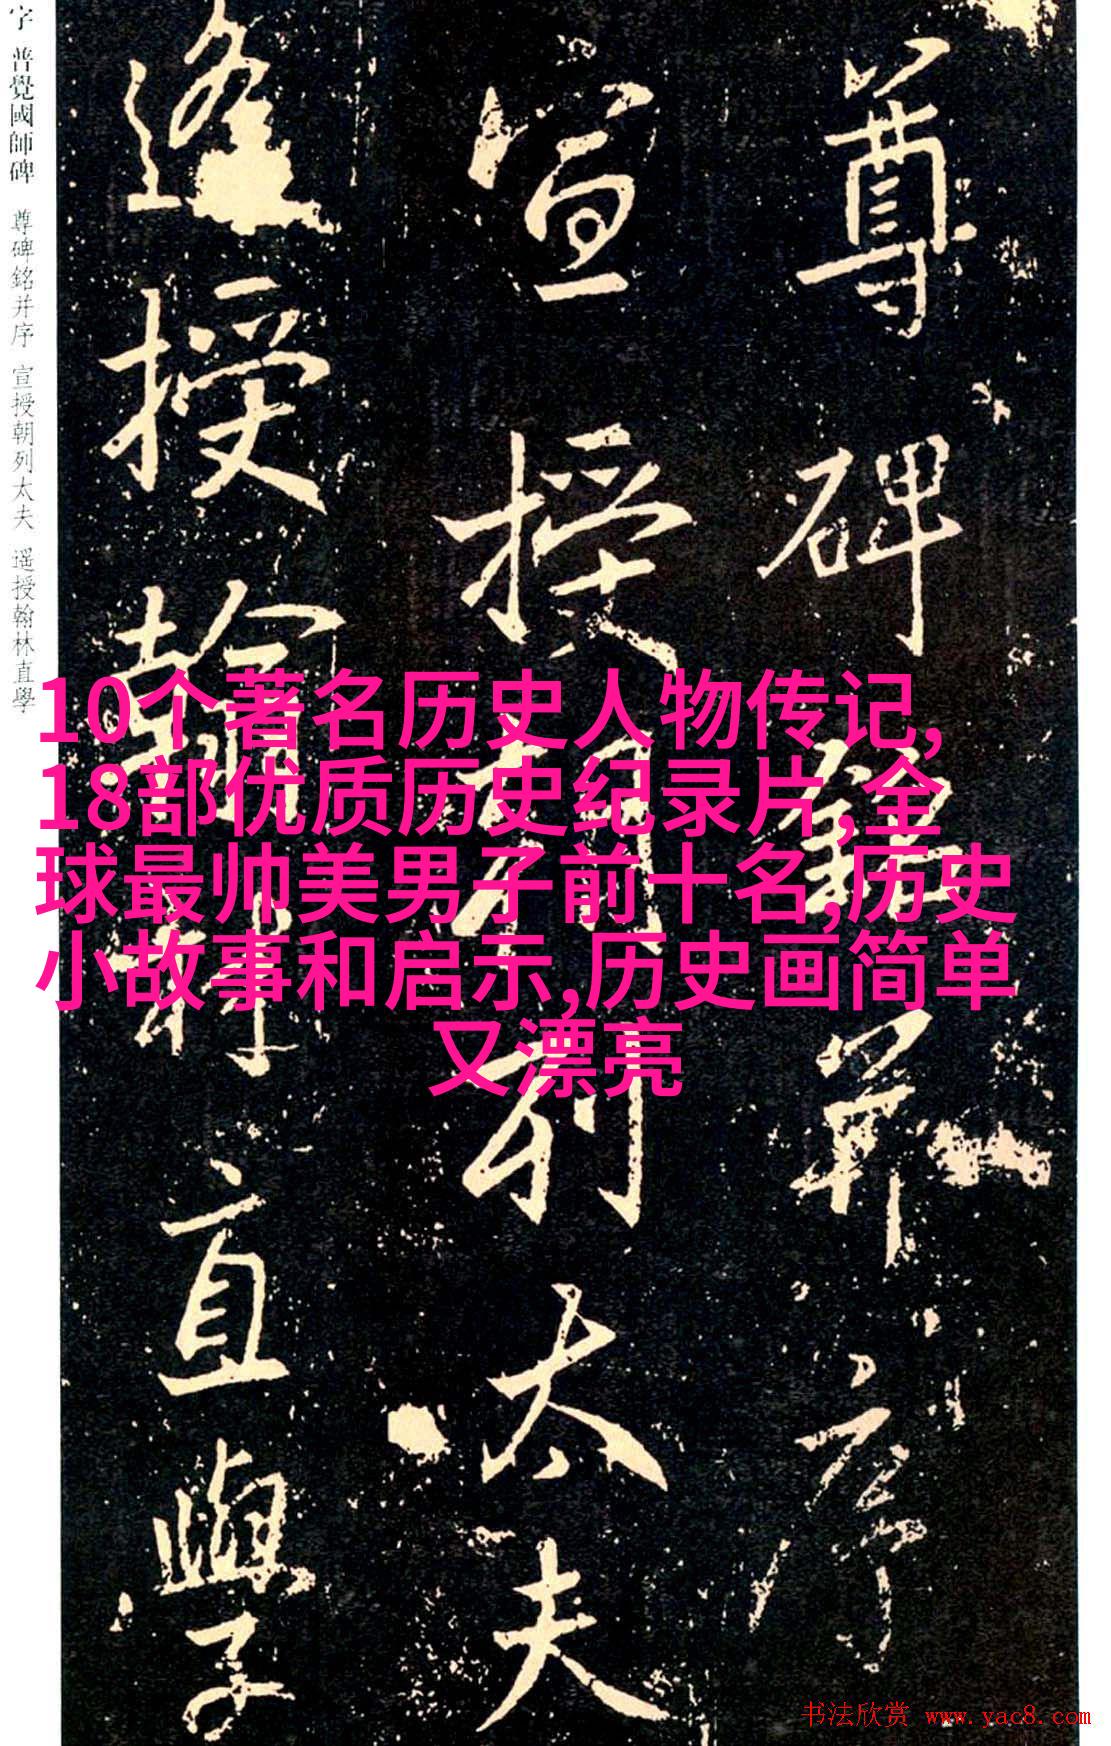 字 普覺國師碑 尊碑銘并序 宣授朝列太夫 遥授翰林直學
尊碑銘并序
宣授朝列太夫
遥授翰林直學
10个著名历史人物传记,
18部优质历史纪录片,全
球最帅美男子前十名,历史
小故事和启示,历史画简单
又漂亮
书法欣赏 www.yac8.com